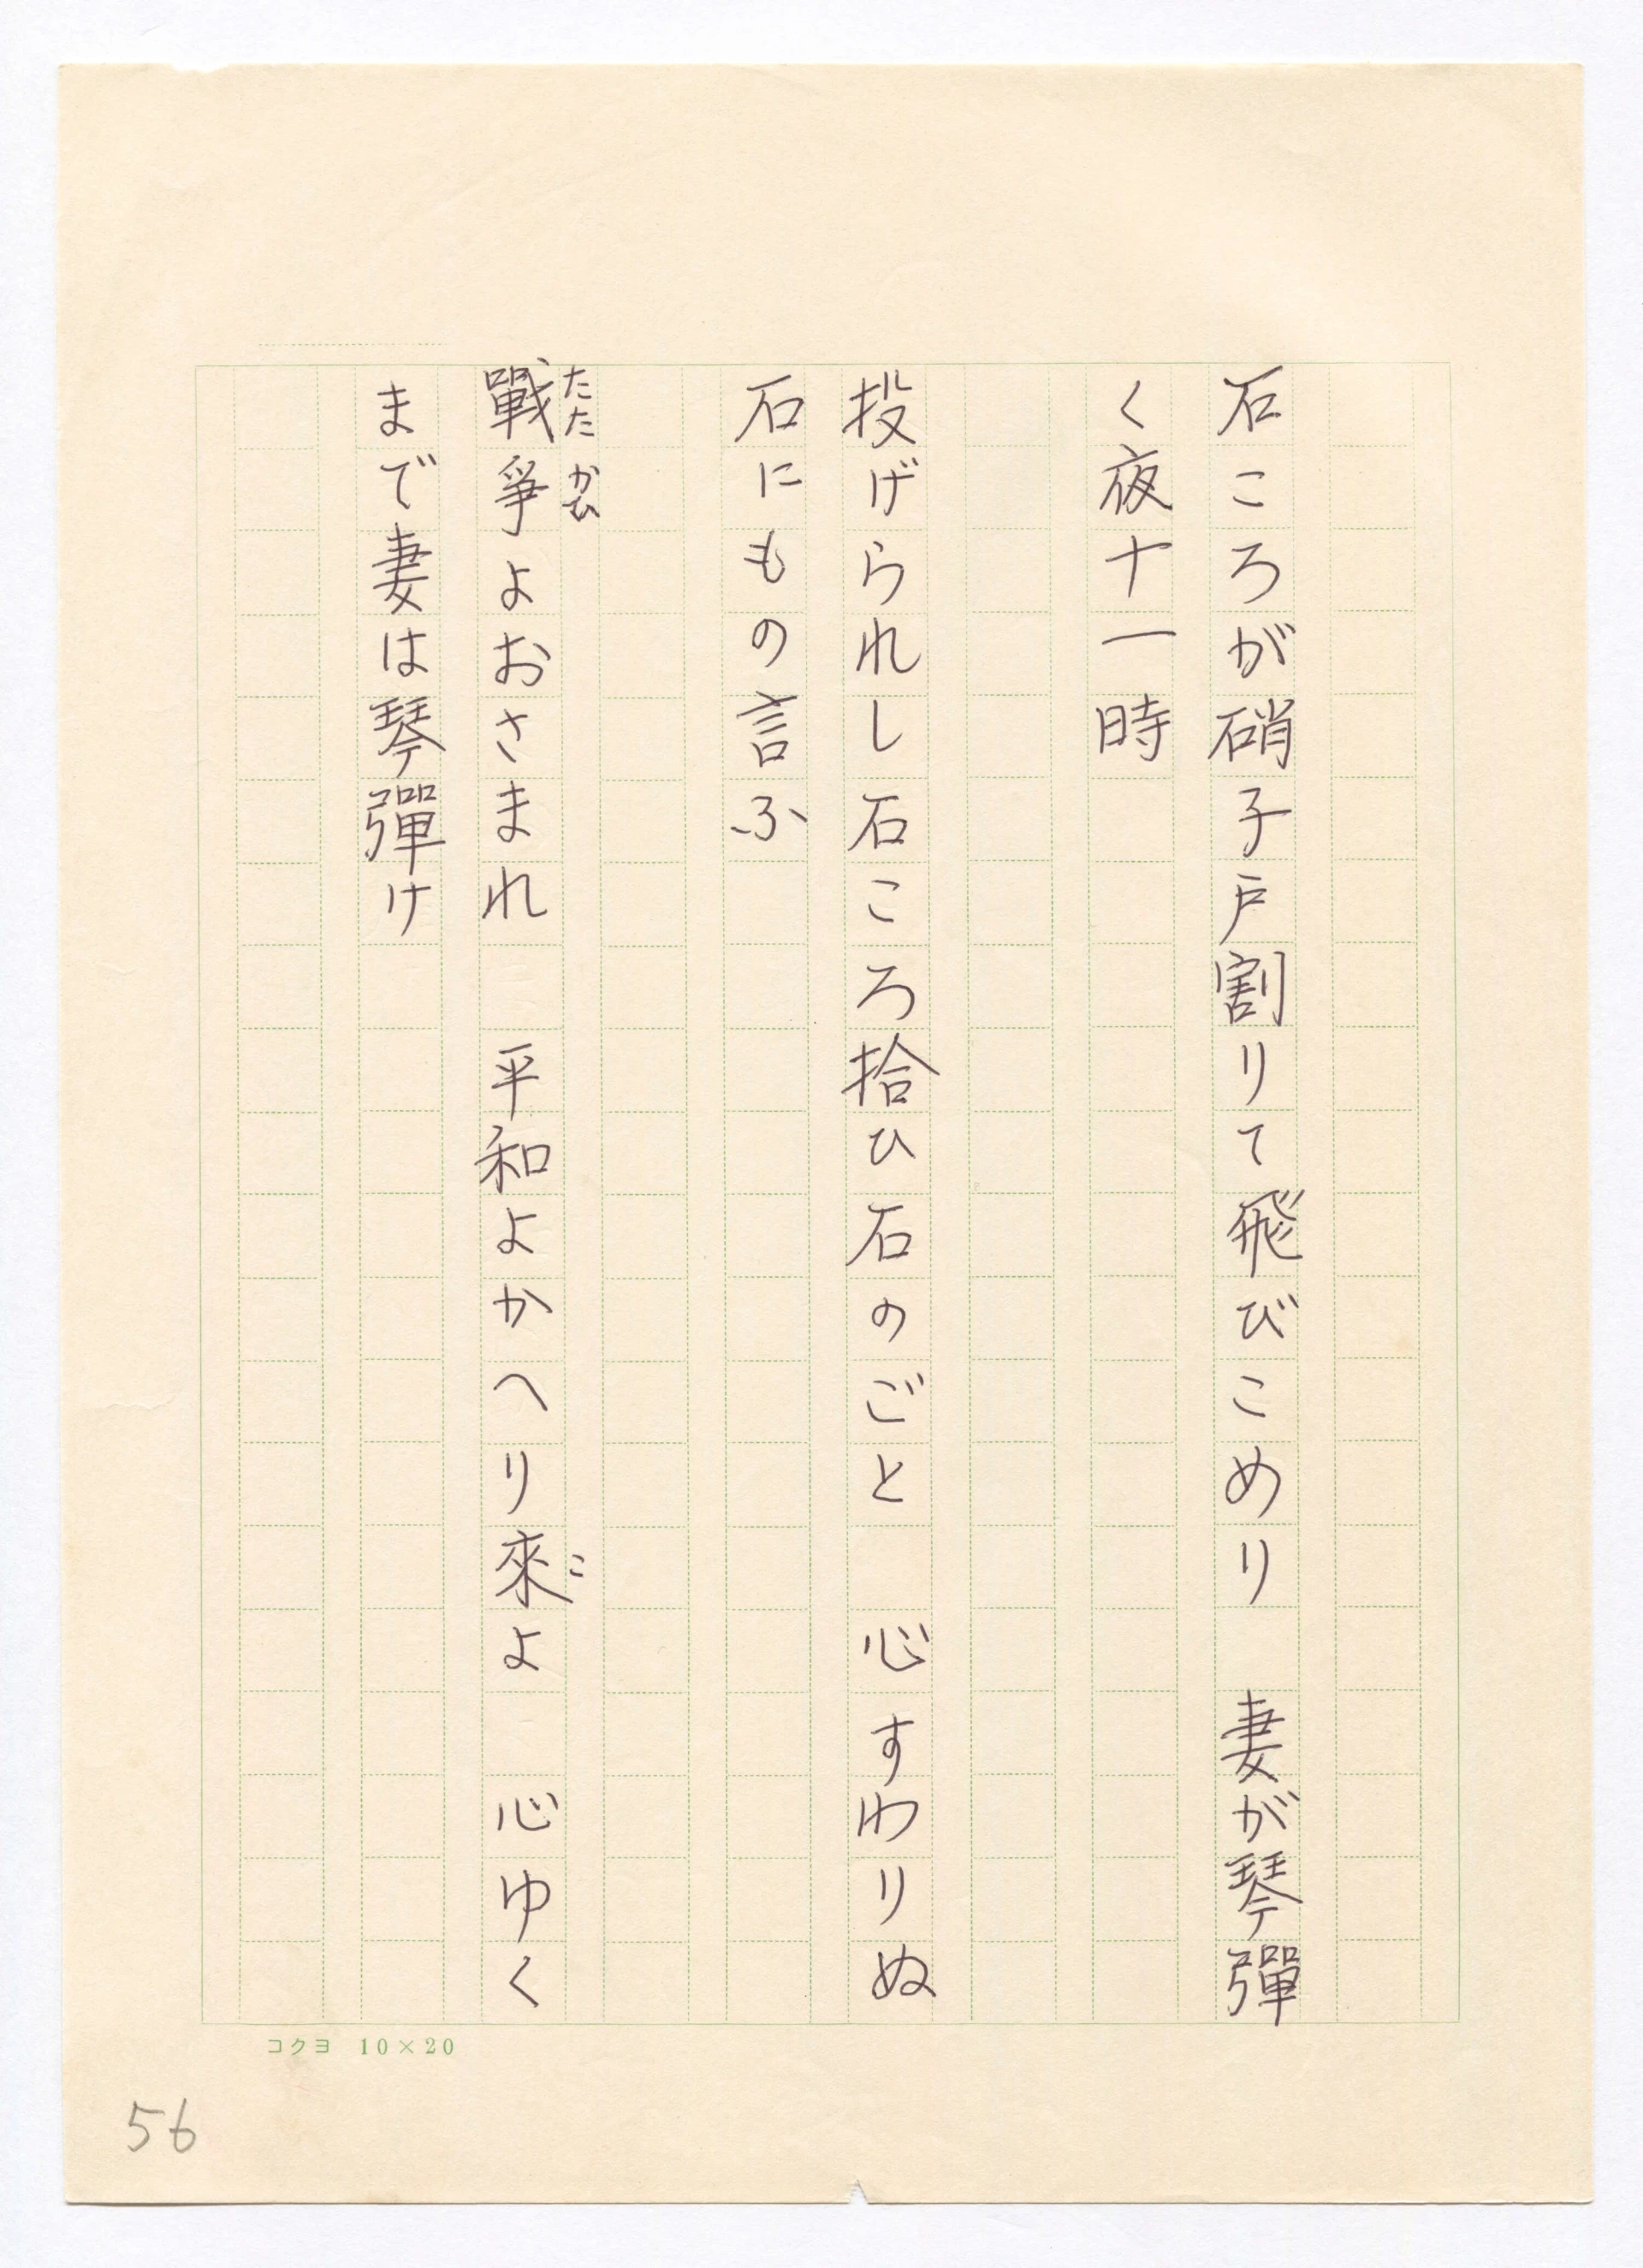 石ころが硝子戸割りて飛びこめり　妻が琴彈
く夜十一時
投げられし石ころ拾ひ石のごと　心すわりぬ
石にもの言ふ
たたかひ
戰爭よおさまれ　平和よかへり來よ　心ゆく
こ
まで妻は琴彈け
コクヨ 10×20
56